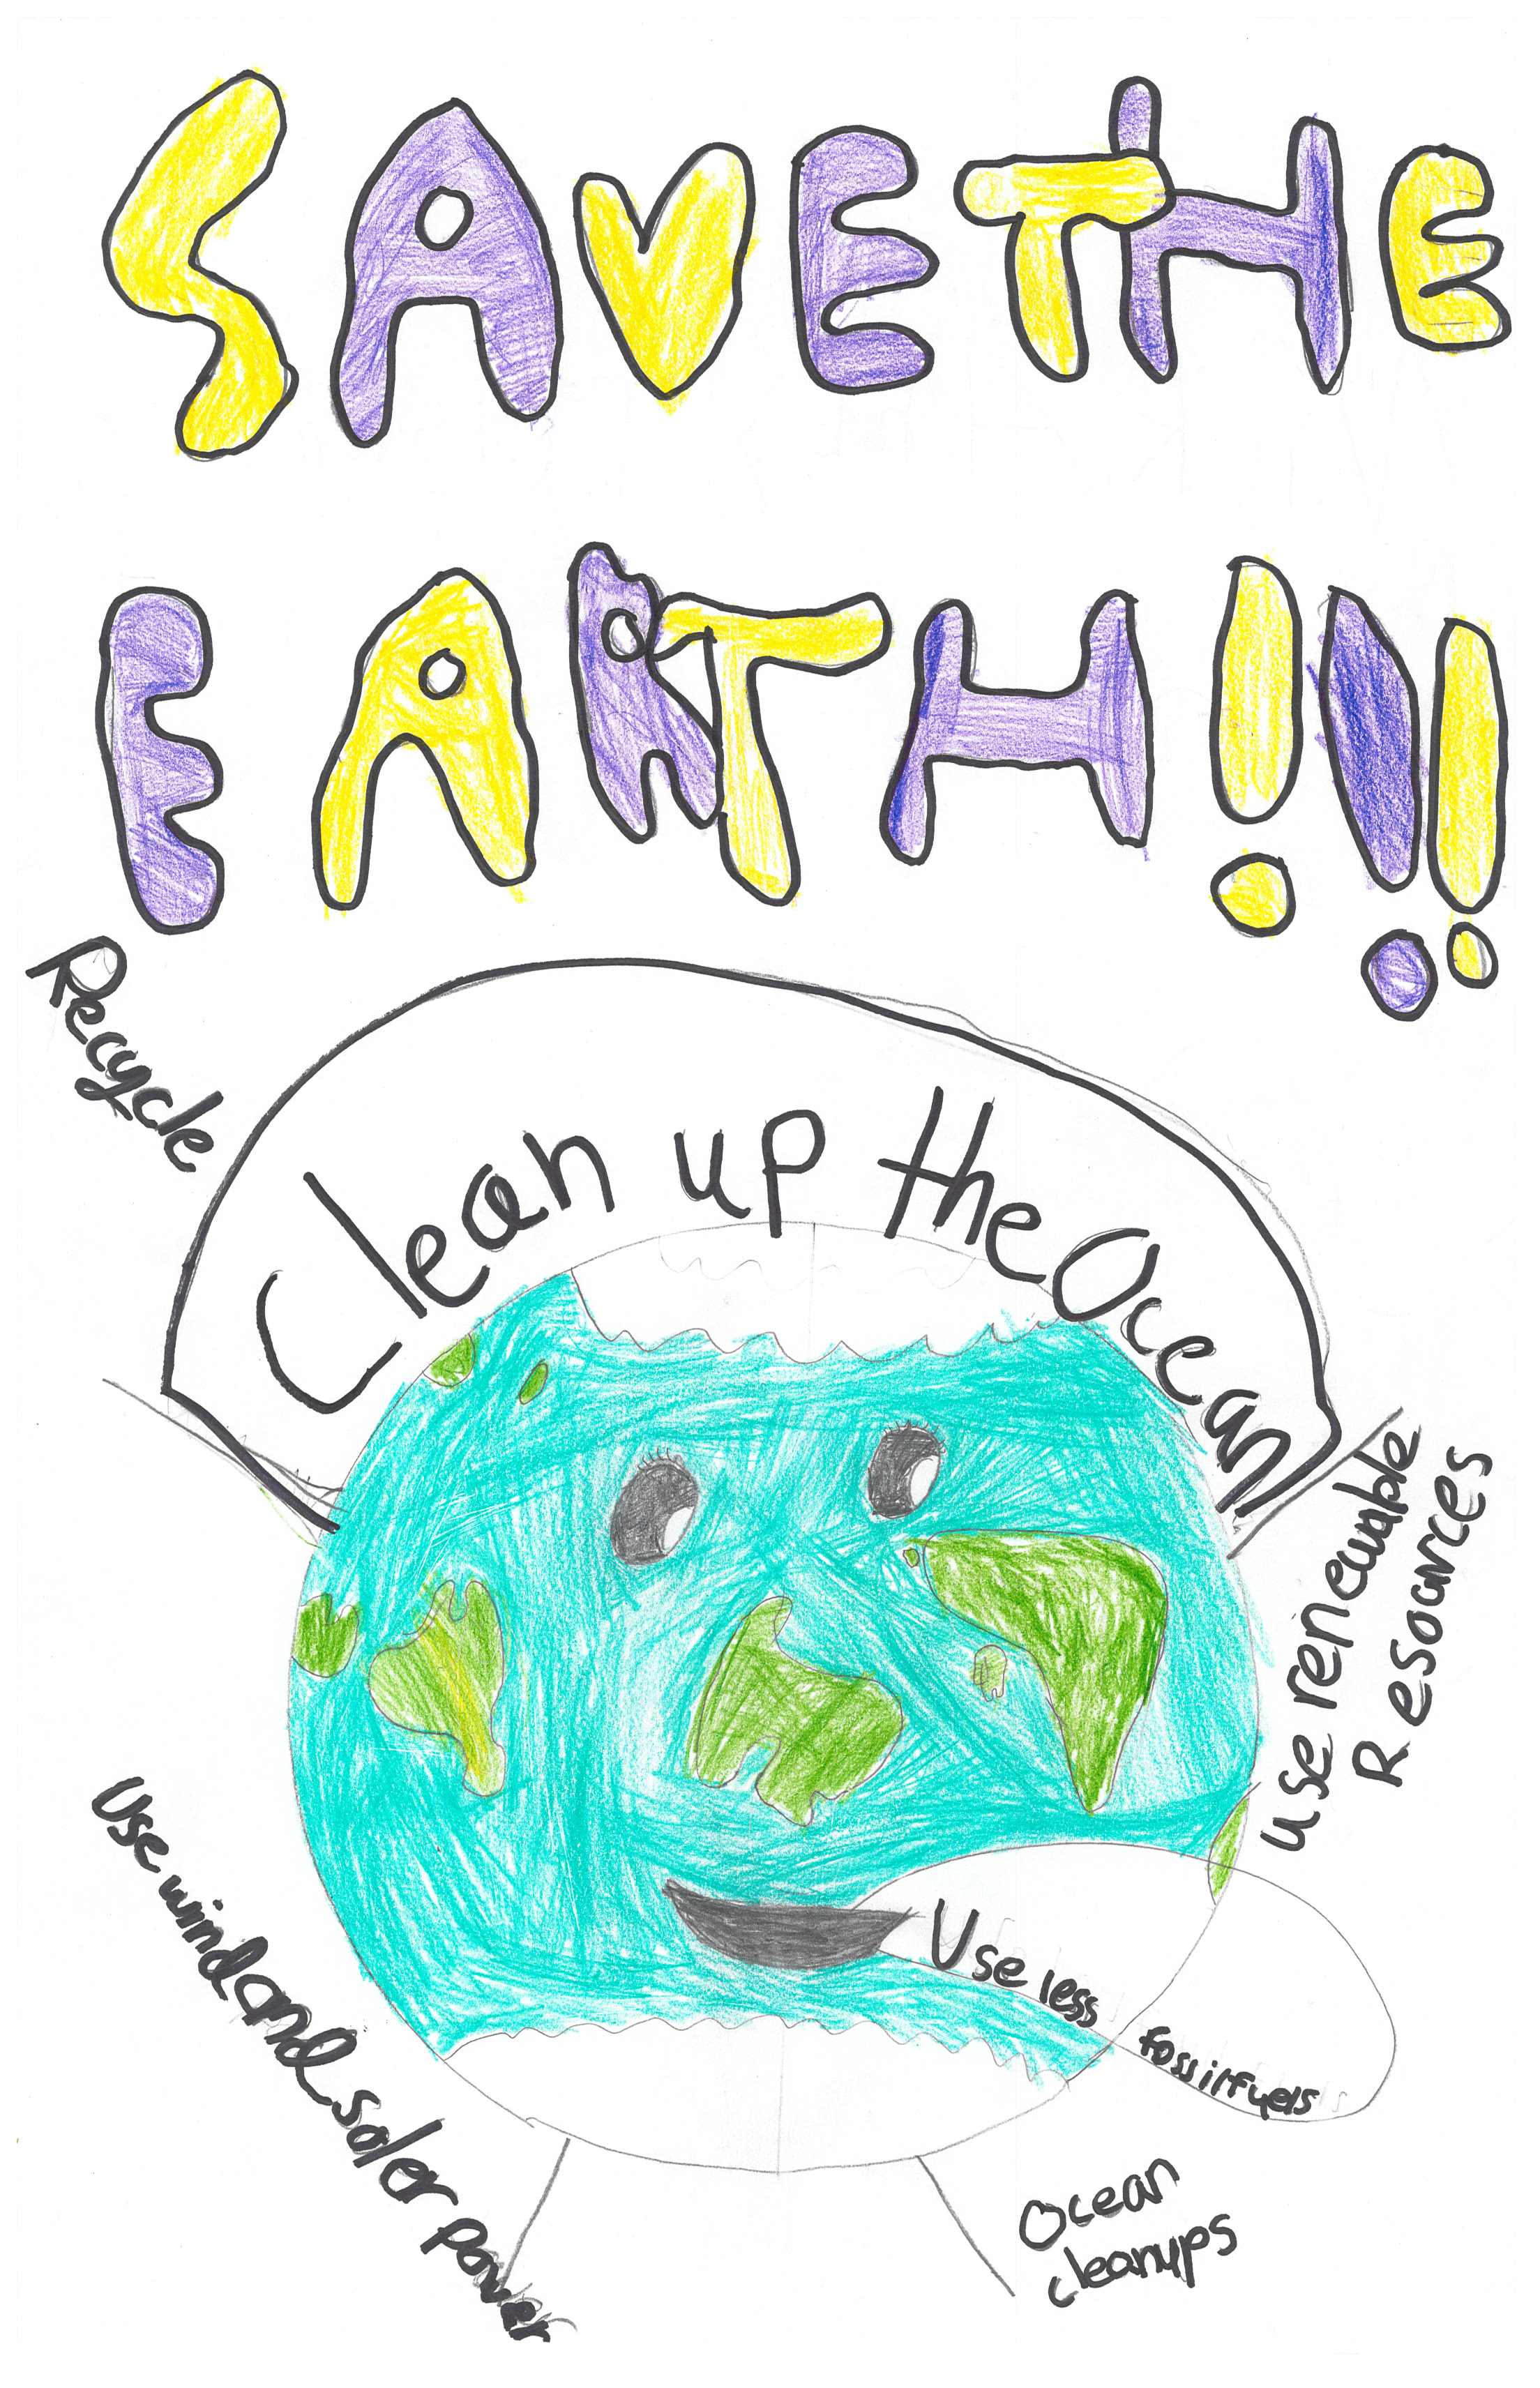 SAVE THE
EARTH!!!
Recycle
Clean up the Ocean
Use renewable
Resources
Use less fossil fuels
Use wind and soler power
Ocean
cleanups